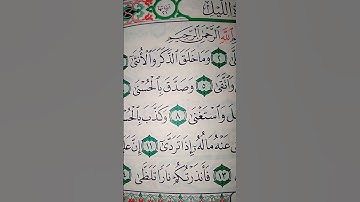 اللَّيْلِ
اللَّهِ الرَّحْمَٰنِ الرَّحِيمِ
لَّىٰ ٢ وَمَا خَلَقَ الذَّكَرَ وَالْأُنثَىٰ
وَاتَّقَىٰ ٥ وَصَدَّقَ بِالْحُسْنَىٰ
لَ وَاسْتَغْنَىٰ ٨ وَكَذَّبَ بِالْحُسْ
عَنْهُ مَالُهُ إِذَا تَرَدَّىٰ ١١ إِنَّ عَلَ
١٣ فَأَنذَرْتُكُمْ نَارًا تَلَظَّىٰ